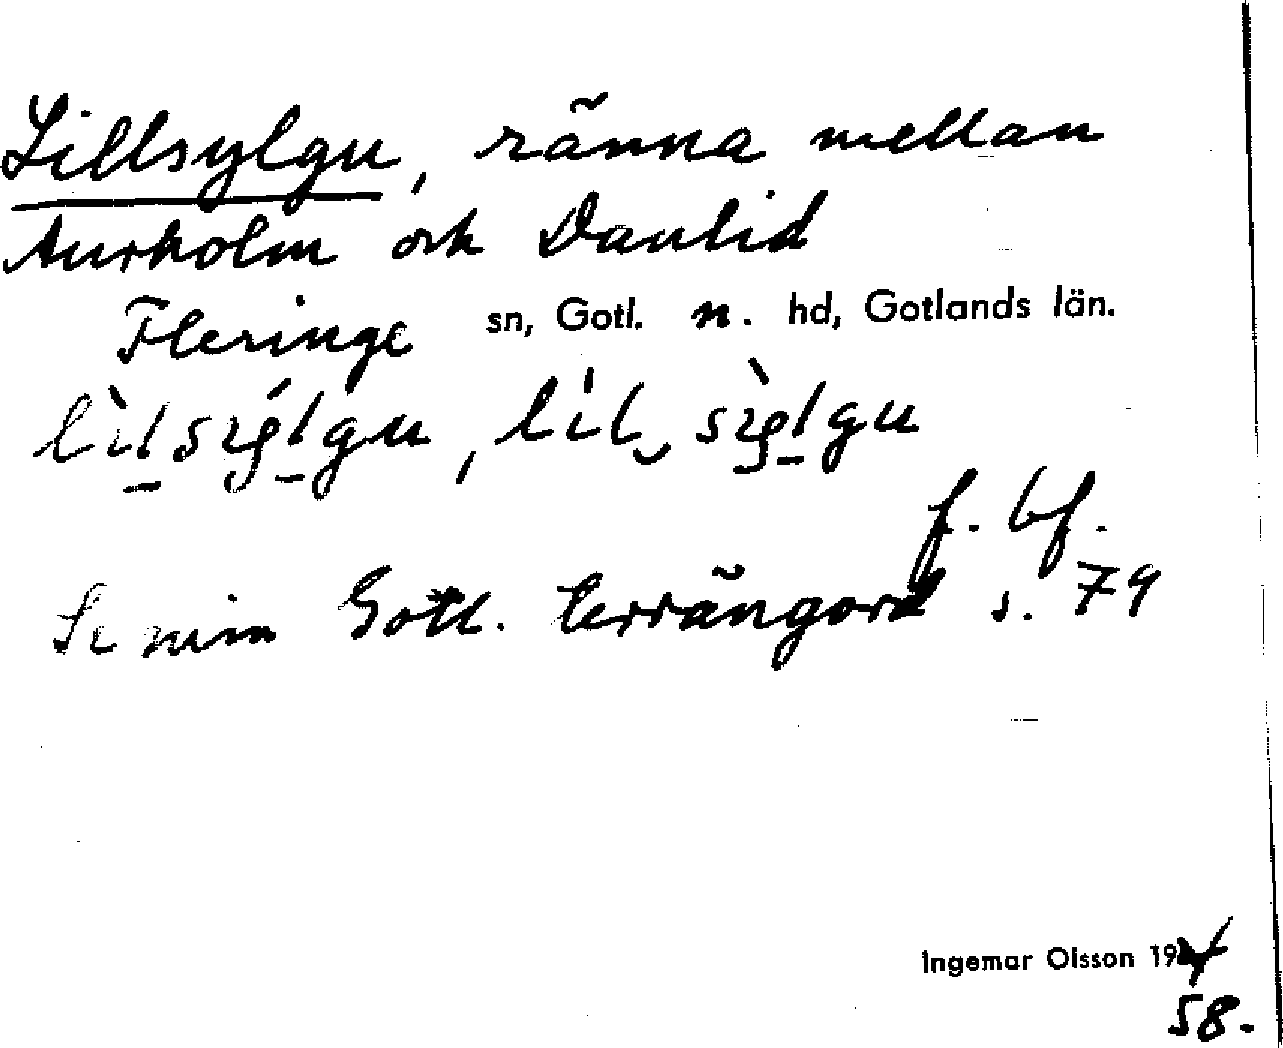 Lillsylgu, ränna mellan
Aurholm och Danlid
Fleringe sn, Gotl. n. hd, Gotlands län.
f. bf.
Se min Gotl. terrängord s. 79
Ingemar Olsson 19
58.